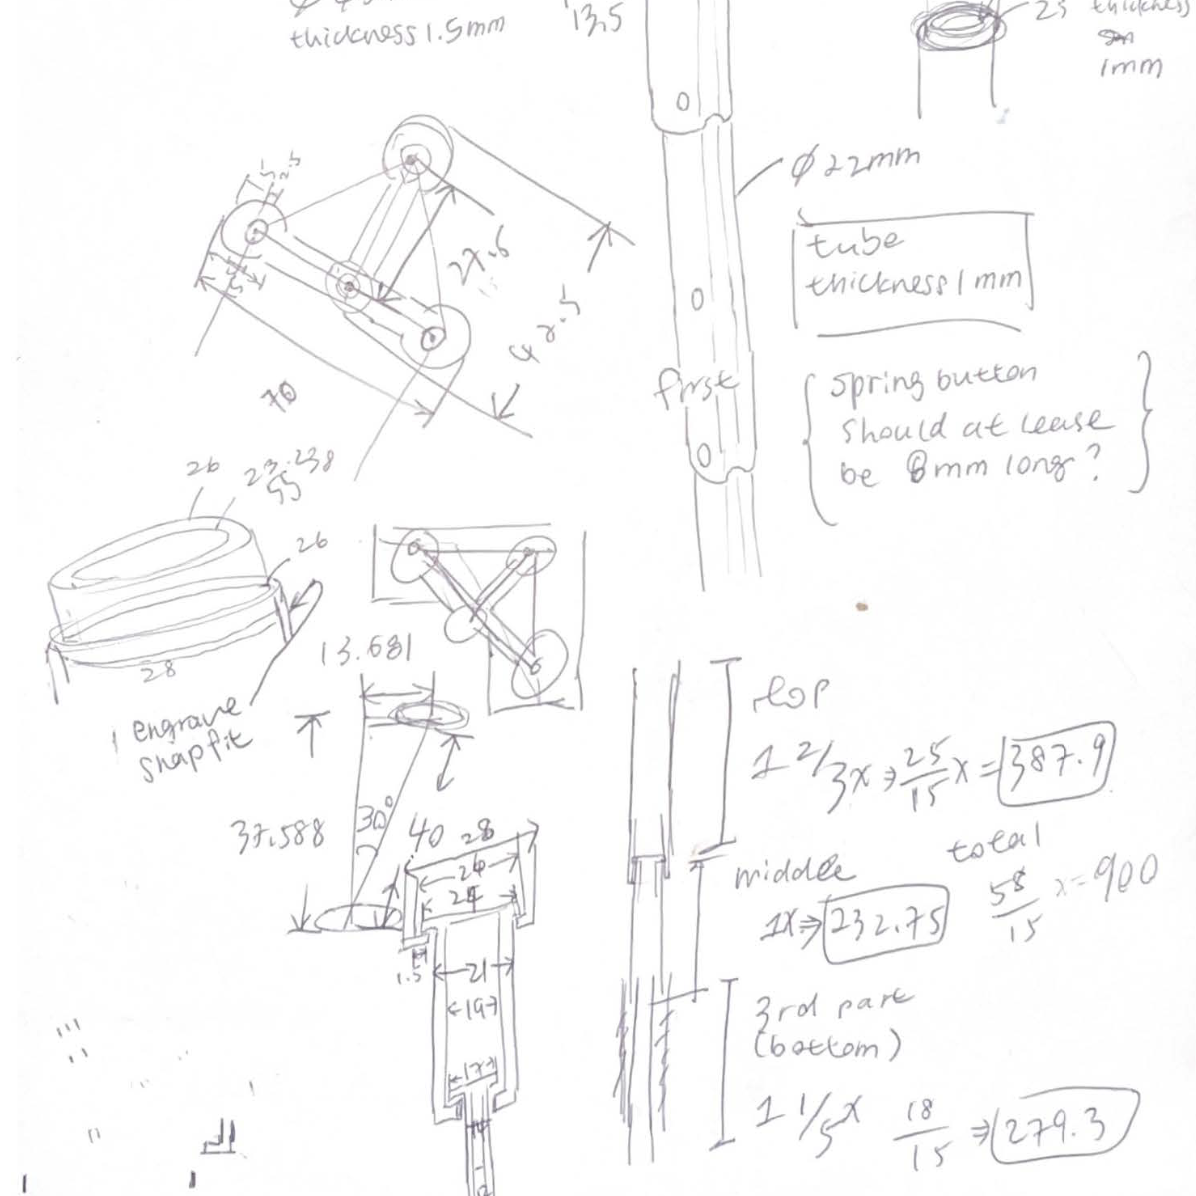 thickness 1.5mm
13.5
25
thickness
1mm
Φ22mm
tube
thickness 1mm
27.6
42.5
70
first
spring button
should at lease
be 8mm long?
26
26
28
1 engrave
snapfit
13.681
37.588
30°
40
28
26
24
1.5
21
19
17
top
1 2/3x ⇒ 25/15 x = 387.9
middle
1x ⇒ 232.75
total
58/15 x = 900
3rd part
(bottom)
1 1/5x 18/15 ⇒ 279.3